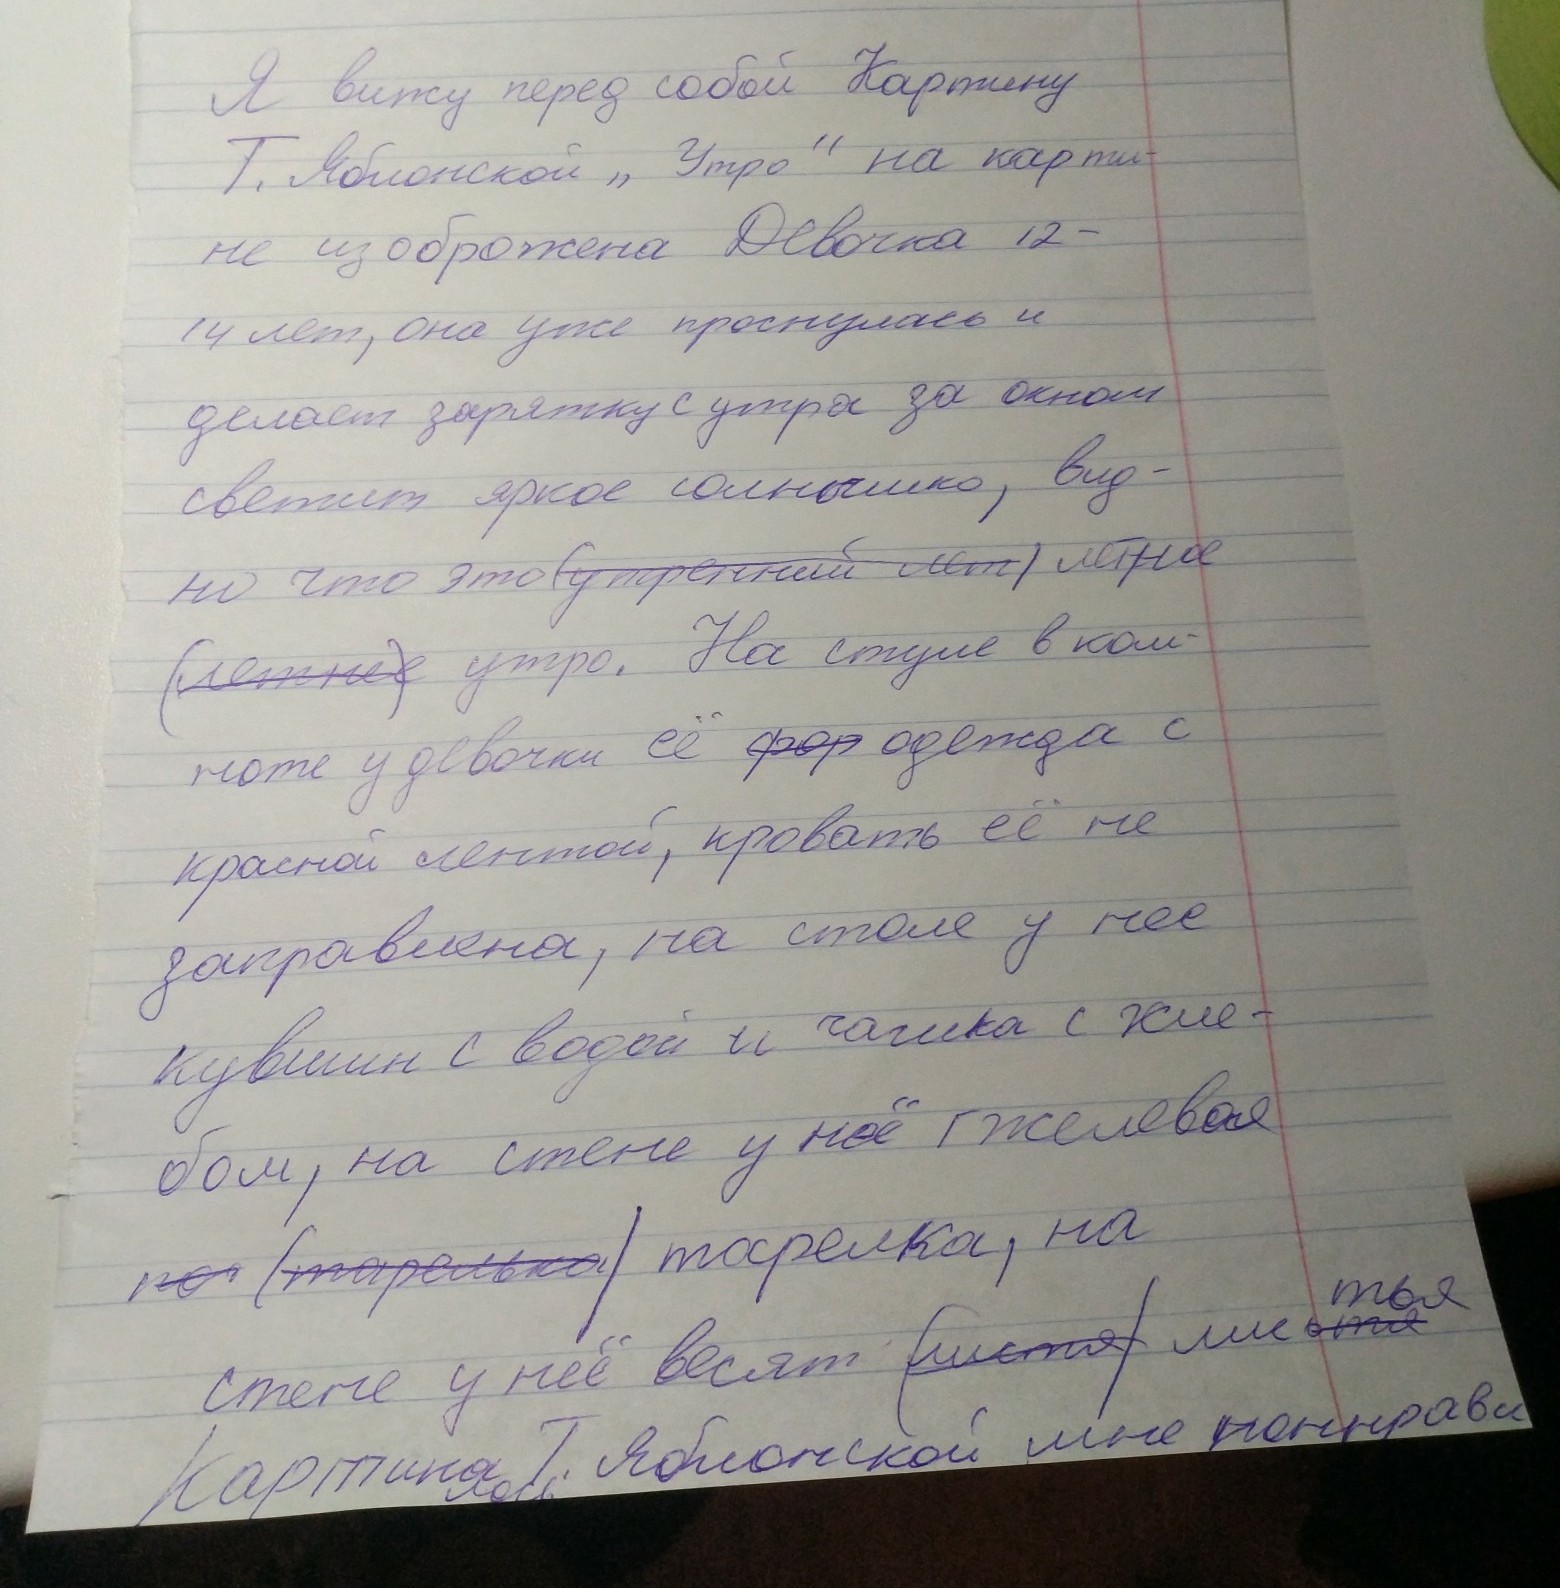 Я вижу перед собой Картину
Т. Яблонской „Утро“ на карти-
не изображена Девочка 12-
14 лет, она уже проснулась и
делает зарятку с утра за окном
светит яркое солнышко, вид-
но что это (утренний лет) летнее
(летние) утро. На стуле в ком-
нате у девочки её фор одежда с
красной лентой, кровать её не
заправлена, на столе у нее
кувшин с водой и чашка с хле-
бом, на стене у неё гжелевая
по (тарелька) тарелка, на
тья
стене у неё весят (листя) листя
Картина Т. Яблонской мне поннрави
лось